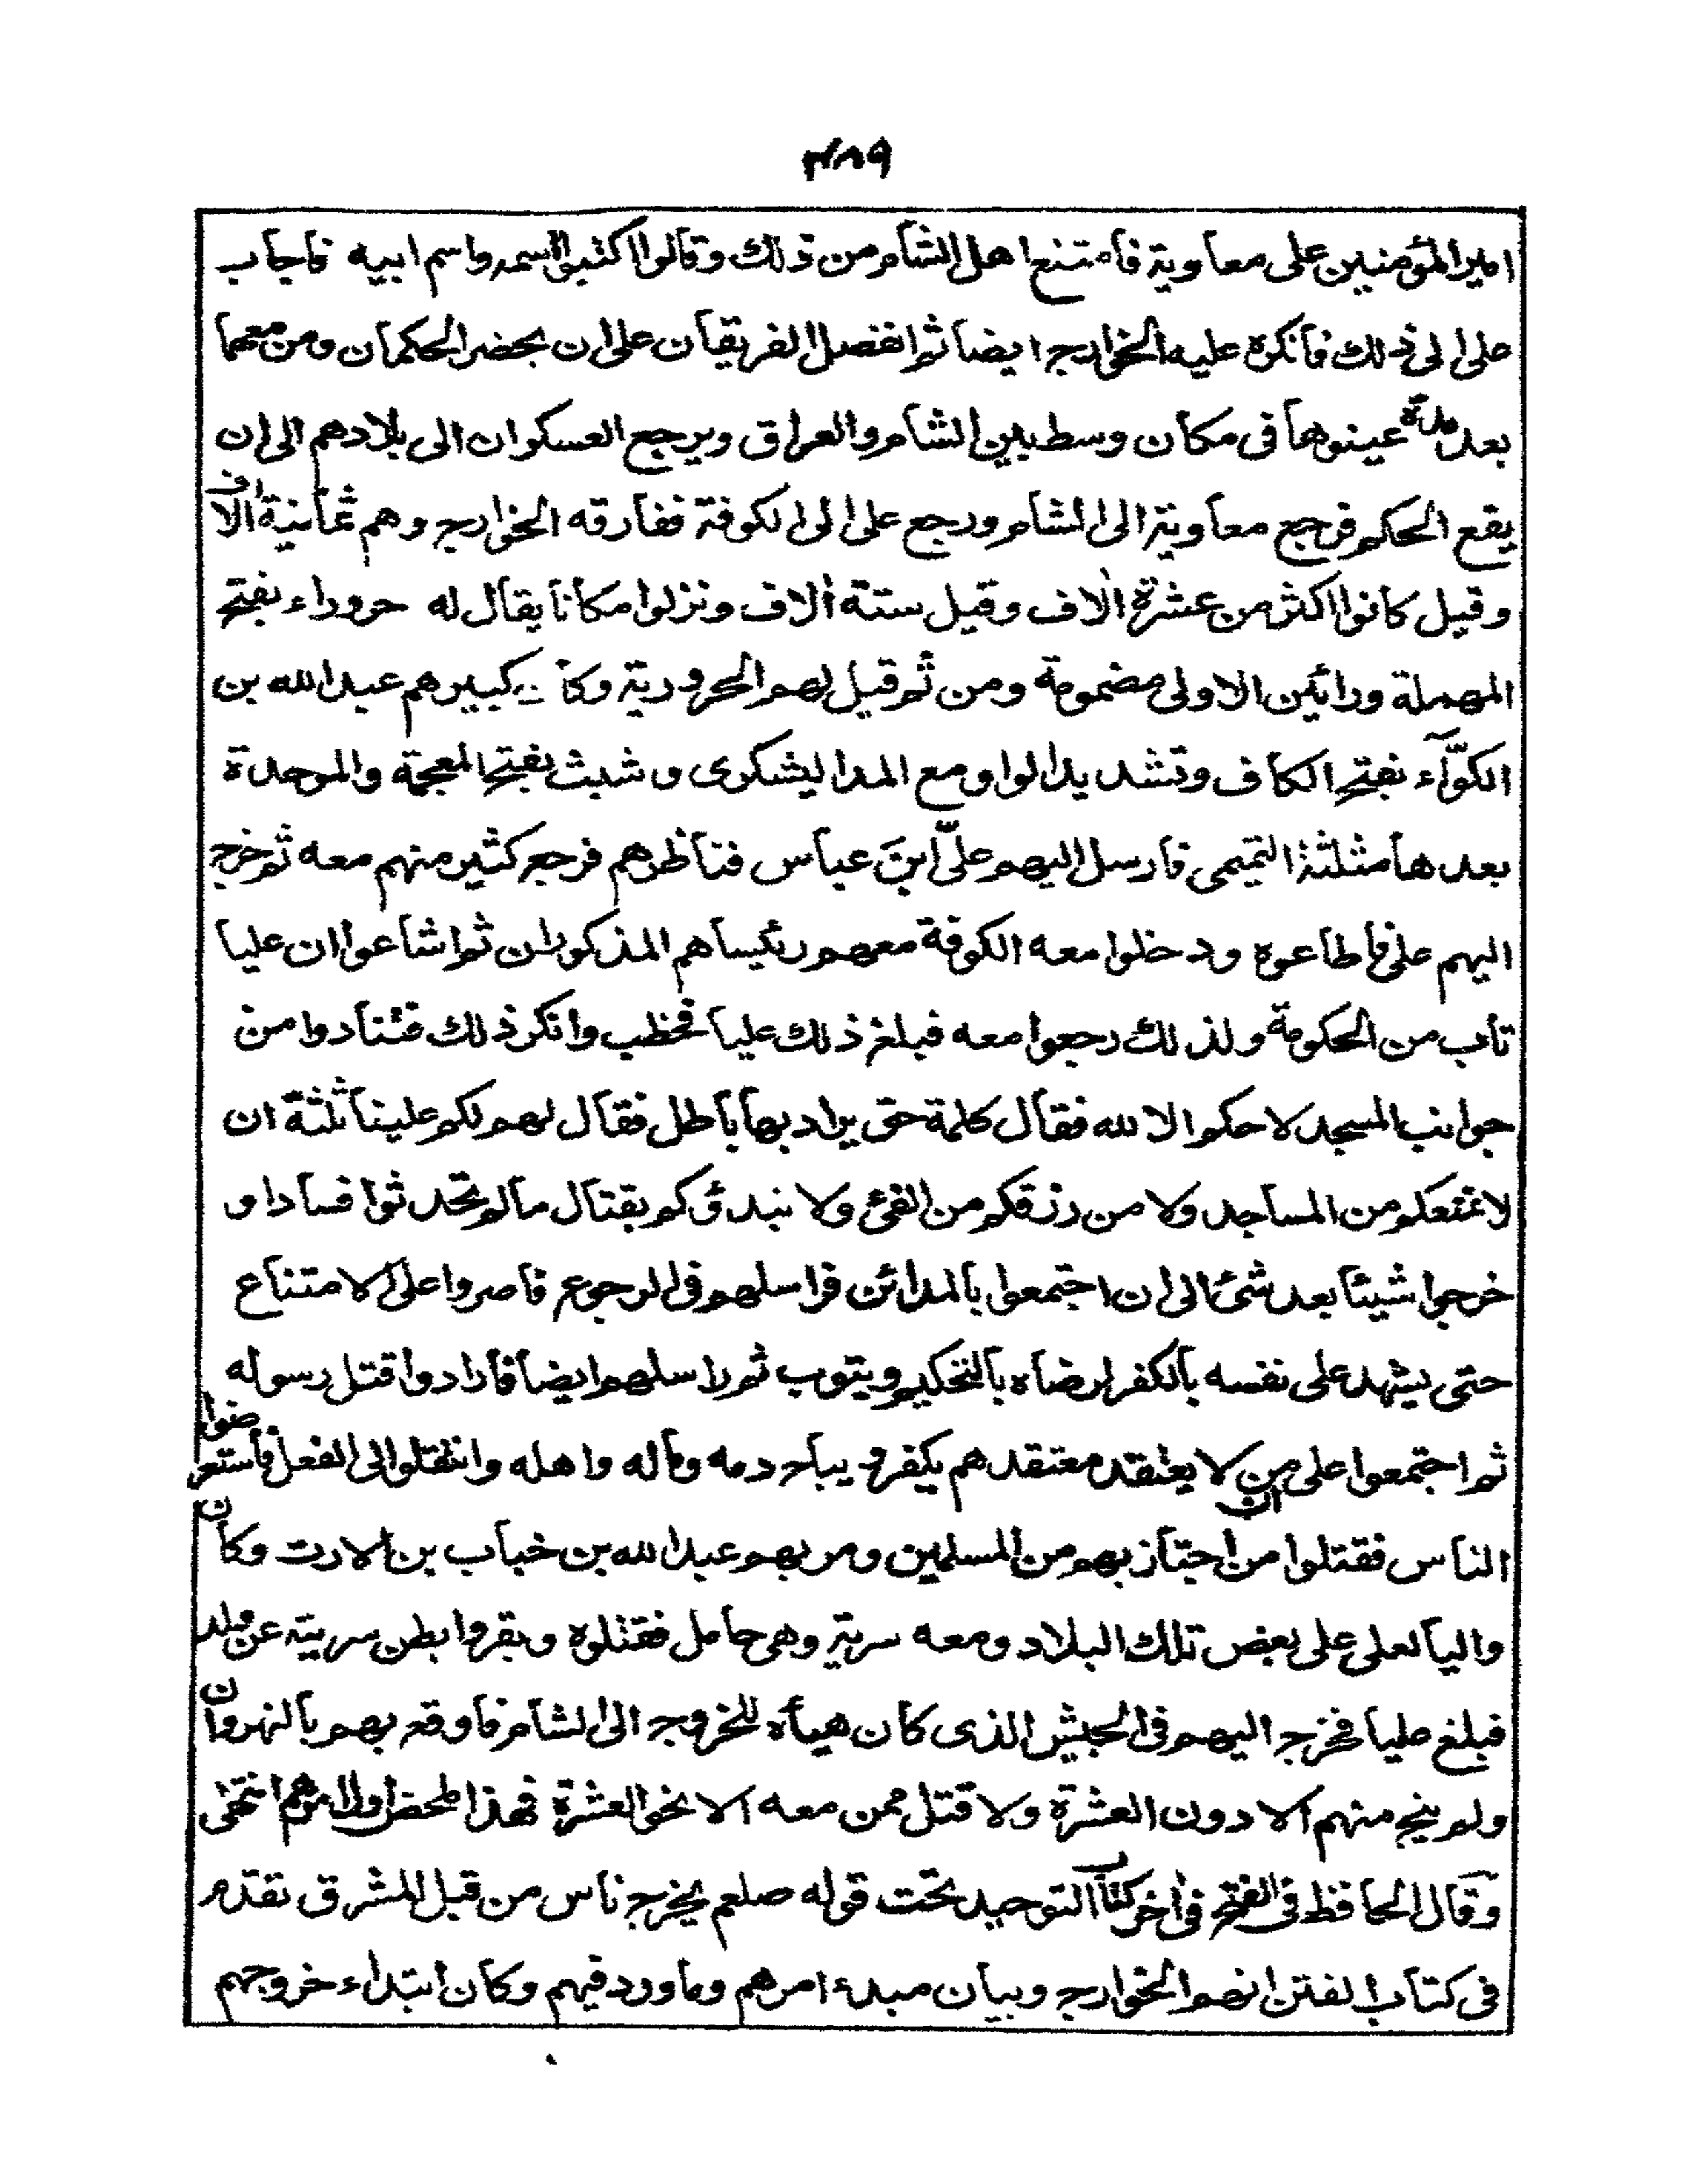 ٤٨٩
امير المؤمنين على معاوية فامتنع اهل الشام من ذلك وقالوا اكتبوا اسمه واسم ابيه فاجاب
على الى ذلك فانكره عليه الخوارج ايضا ثم انفصل الفريقان على ان يحضر الحكمان ومن معهما
بعد مدة عينوها فى مكان وسط بين الشام والعراق ويرجع العسكران الى بلادهم الى ان
يقع الحكم فرجع معاوية الى الشام ورجع على الى الكوفة ففارقه الخوارج وهم ثمانية الاف
وقيل كانوا اكثر من عشرة الاف وقيل ستة الاف ونزلوا مكانا يقال له حروراء بفتح
المهملة ورائين الاولى مضمومة ومن ثم قيل لهم الحرورية وكان كبيرهم عبد الله بن
الكوّآء بفتح الكاف وتشديد الواو مع المد اليشكرى و شبث بفتح المعجمة والموحدة
بعدها مثلثة التميمى فارسل اليهم علىّ ابنَ عباس فناظرهم فرجع كثير منهم معه ثم خرج
اليهم على فاطاعوه ودخلوا معه الكوفة معهم رئيساهم المذكوران ثم اشاعوا ان عليا
تاب من الحكومة ولذلك رجعوا معه فبلغ ذلك عليا فخطب وانكر ذلك فتنادوا من
جوانب المسجد لا حكم الا لله فقال كلمة حق يراد بها باطل فقال لهم لكم علينا ثلثة ان
لا نمنعكم من المساجد ولا من رزقكم من الفئ ولا نبدؤكم بقتال ما لم تحدثوا فسادا و
خرجوا شيئا بعد شئ الى ان اجتمعوا بالمدائن فراسلهم فى الرجوع فاصروا على الامتناع
حتى يشهد على نفسه بالكفر لرضاه بالتحكيم ويتوب ثم راسلهم ايضا فارادوا قتل رسوله
ثم اجتمعوا على ان من لا يعتقد معتقدهم يكفر و يباح دمه وماله واهله وانتقلوا الى الفعل فاستعرضوا
الناس فقتلوا من اجتاز بهم من المسلمين ومر بهم عبد الله بن خباب بن الارت وكان
واليا لعلى على بعض تلك البلاد ومعه سرية وهى حامل فقتلوه وبقروا بطن سريته عن ولد
فبلغ عليا فخرج اليهم فى الجيش الذى كان هيأه للخروج الى الشام فاوقع بهم بالنهروان
ولم ينج منهم الا دون العشرة ولا قتل ممن معه الا نحو العشرة فهذا ملخص اول امرهم انتهى
وقال الحافظ فى الفتح فى اخر كتاب التوحيد تحت قوله صلعم يخرج ناس من قبل المشرق تقدم
فى كتاب الفتن انهم الخوارج وبيان مبدء امرهم وما ورد فيهم وكان ابتداء خروجهم